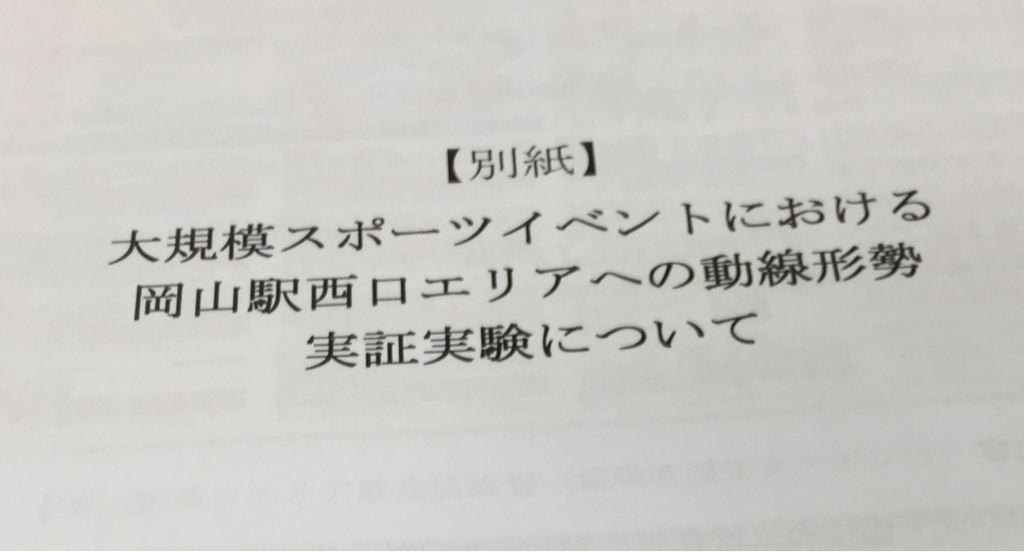 【別紙】
大規模スポーツイベントにおける
岡山駅西口エリアへの動線形勢
実証実験について